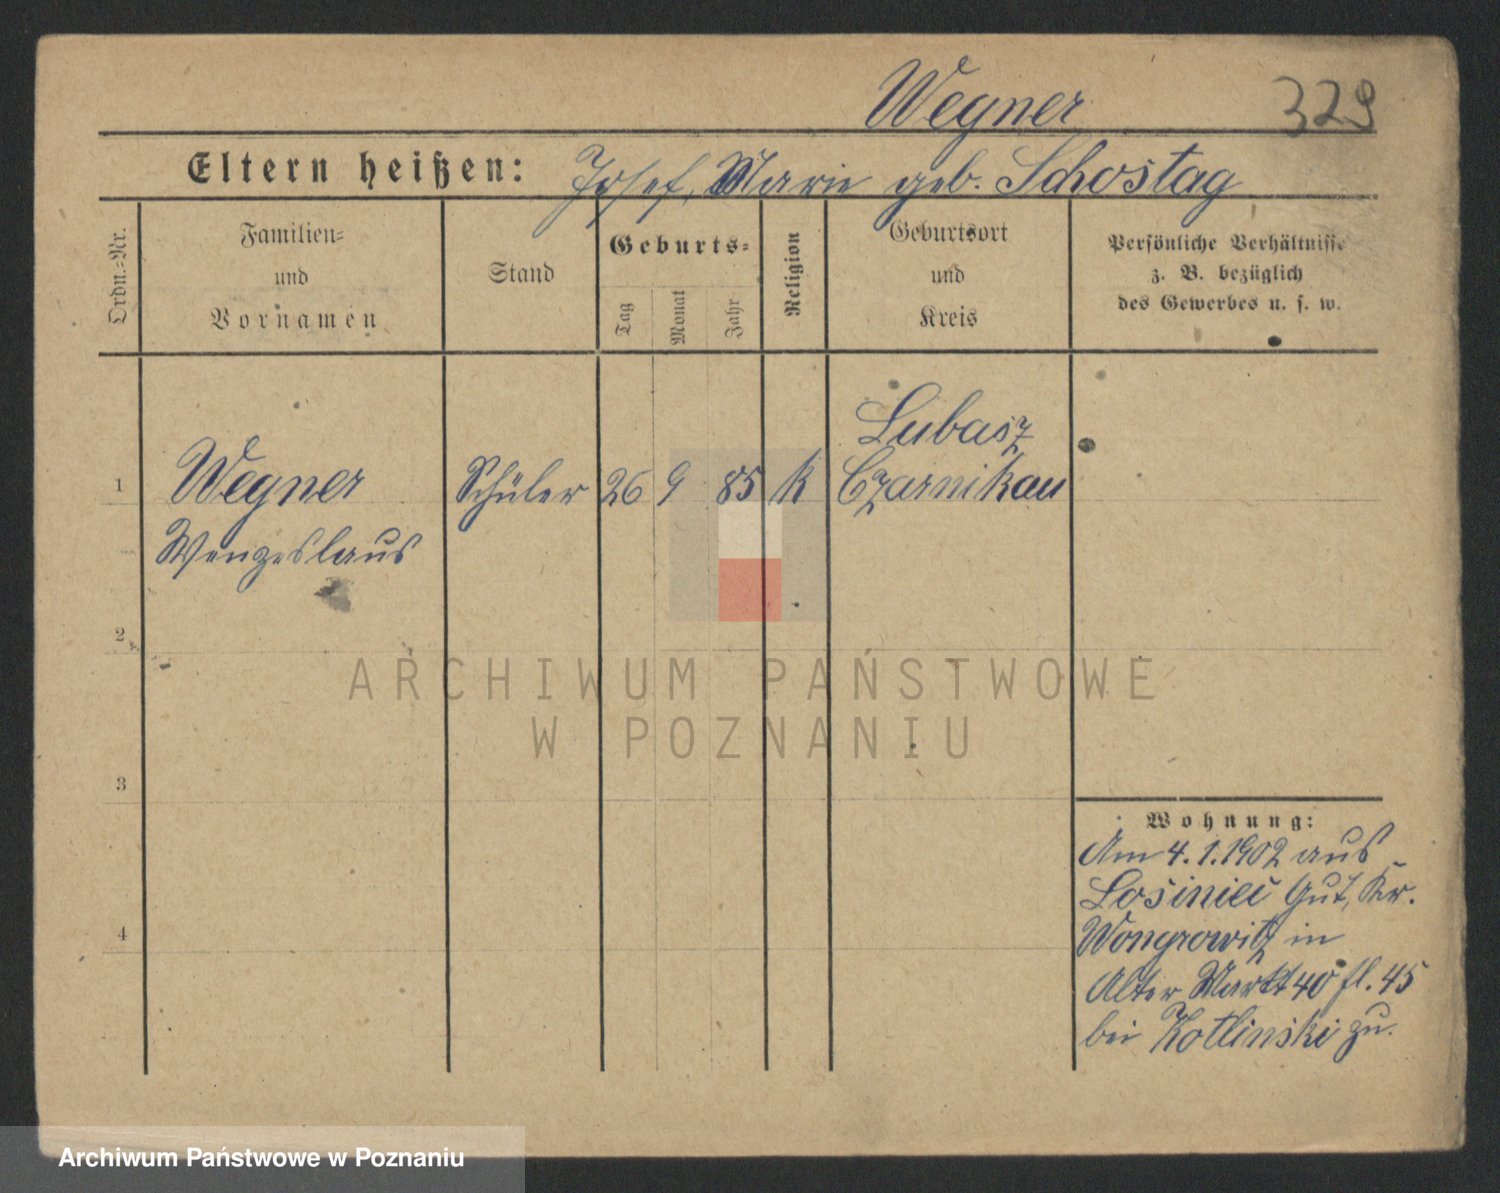 Wegner 329
Eltern heißen: Josef, Marie geb. Schostag
Ordn.-Nr.
Familien-
und
Vornamen
Stand
Geburts-
Tag
Monat
Jahr
Religion
Geburtsort
und
Kreis
Persönliche Verhältnisse
z. B. bezüglich
des Gewerbes u. s. w.
Lubasz
1 Wegner Schüler 26 9 85 k Czarnikau
Wenzeslaus
2
3
4
Wohnung:
Am 4.1.1902 aus
Losiniec Gut, Kr.
Wongrowitz in
Alter Markt 40 fl. 45
bei Kotlinski zu.
ARCHIWUM PAŃSTWOWE
W POZNANIU
Archiwum Państwowe w Poznaniu